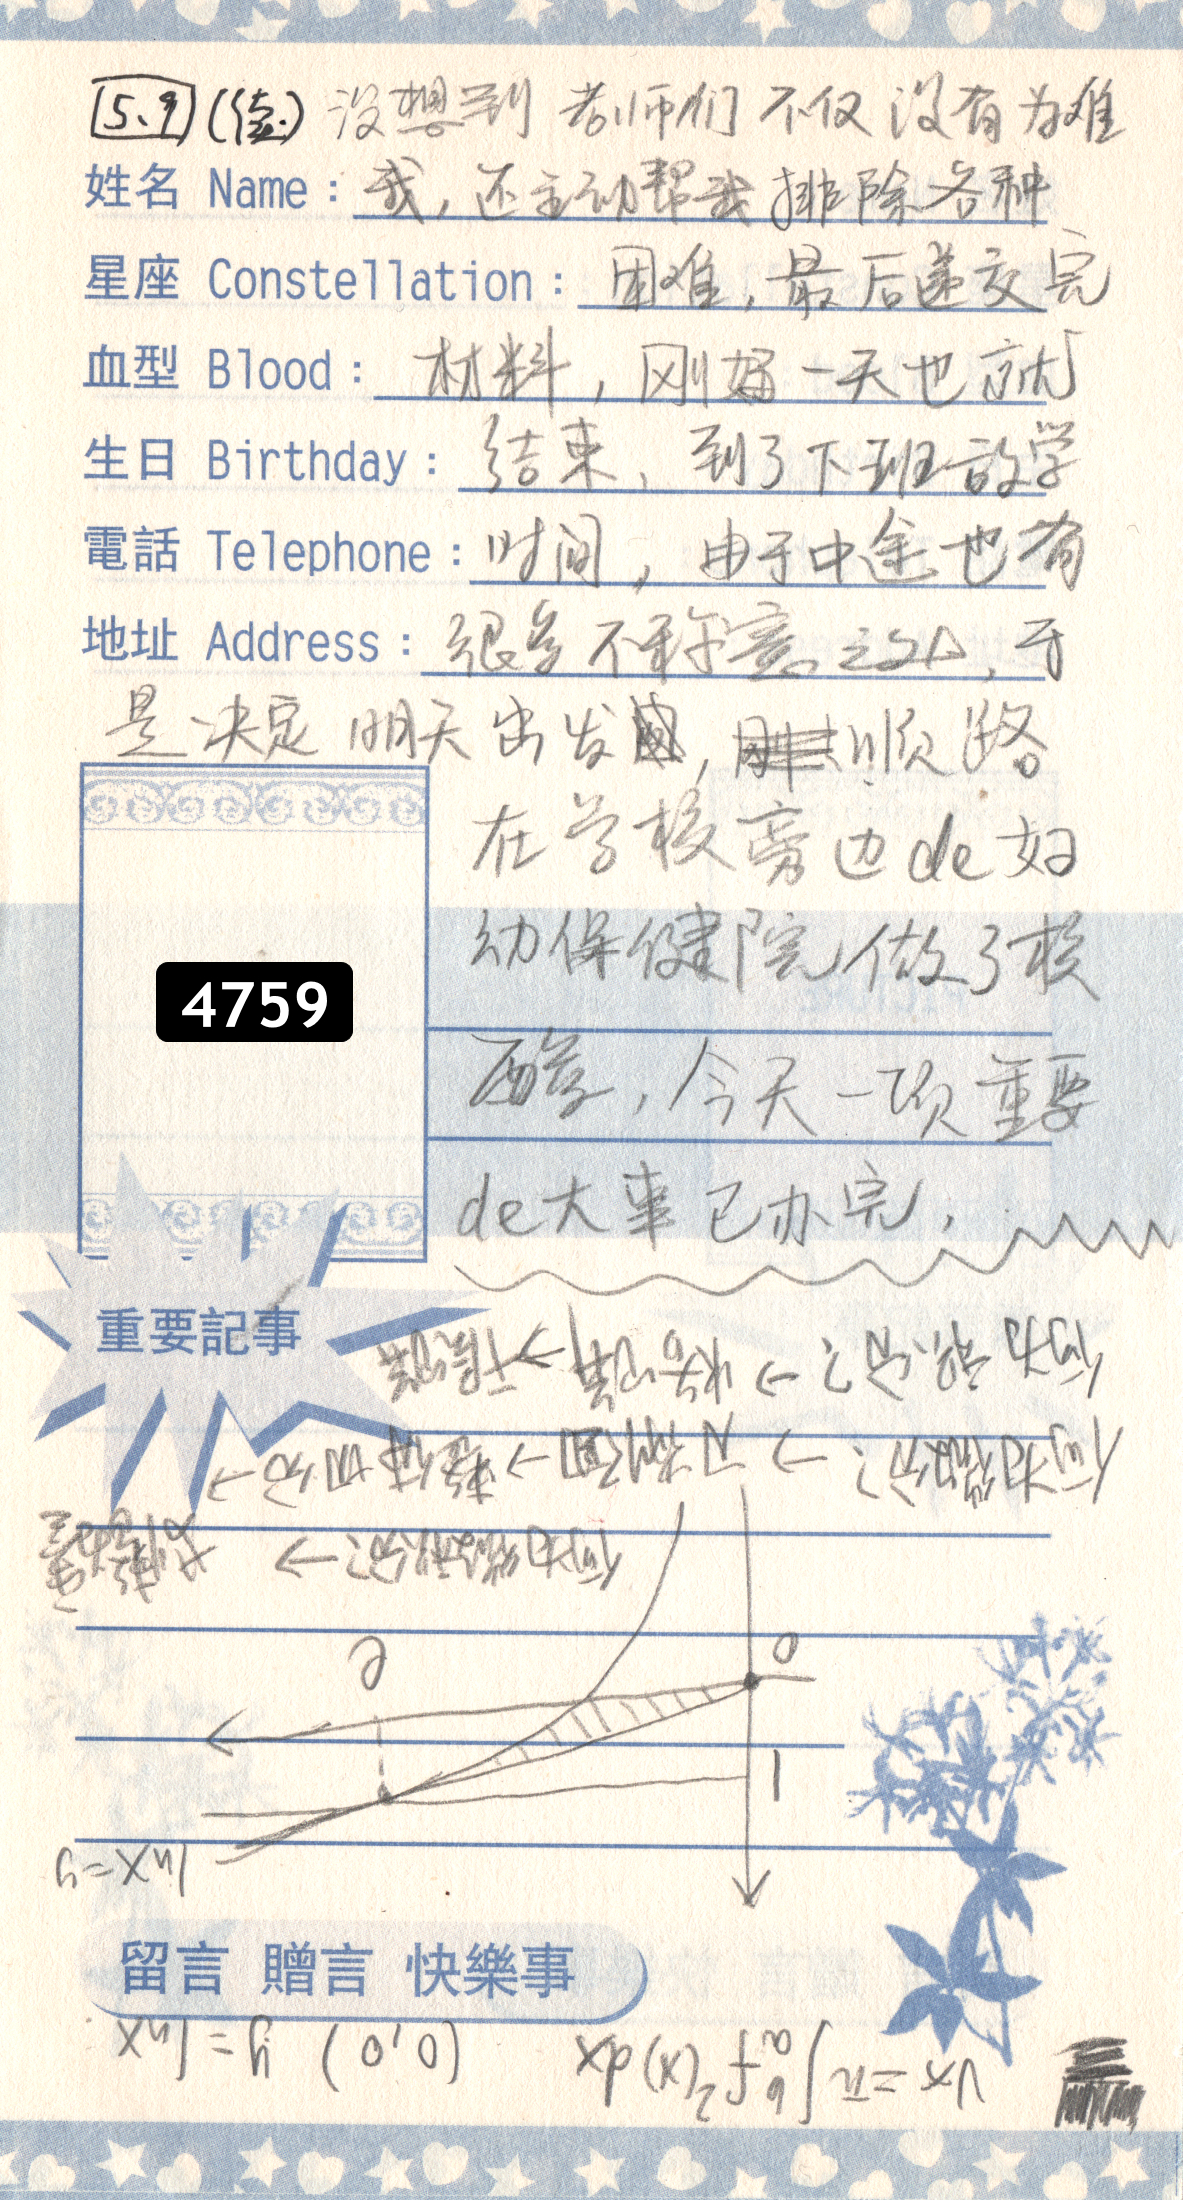 5.9 (续) 没想到老师们不仅没有为难
姓名 Name: 我，还主动帮我排除各种
星座 Constellation: 困难，最后递交完
血型 Blood: 材料，刚好一天也就
生日 Birthday: 结束，到了下班放学
電話 Telephone: 时间，由于中途也有
地址 Address: 很多不称意之处，于
是决定明天出发，顺路
在学校旁边de妇
幼保健院做了核
酸，今天一项重要
de大事已办完，
4759
重要記事
何为
何为微分? →
何为微积分? →
e
0
1
lnx=y
留言 贈言 快樂事
Vx=π∫ₐᵇf²(x)dx (0,0) y=lnx